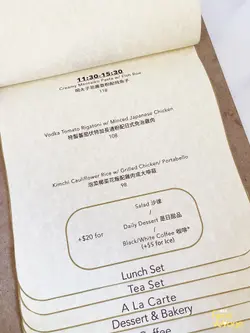 11:30-15:30
Creamy Mentaiko Pasta w/ Fish Roe
明太子忌廉意粉配飛魚子
Vodka Tomato Rigatoni w/ Minced Japanese Chicken
108
Kimchi Cauliflower Rice w/ Grilled Chicken/ Portabello
泡菜椰菜花飯配雞肉或大啡菇
98
+$20 for
Salad 沙律
/
Daily Dessert 是日甜品
/
Black/White Coffee 咖啡*
(+$5 for Ice)
Lunch Set
Tea Set
A La Carte
Dessert & Bakery
Coffee